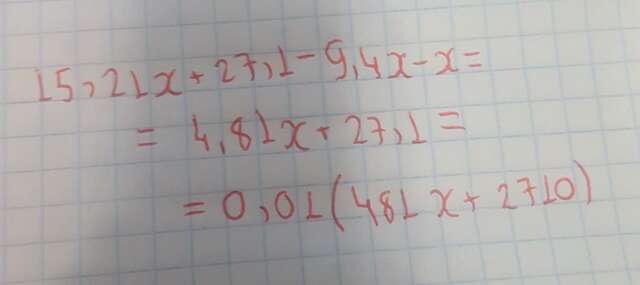 15,21x + 27,1 - 9,4x - x =
= 4,81x + 27,1 =
= 0,01(481x + 2710)